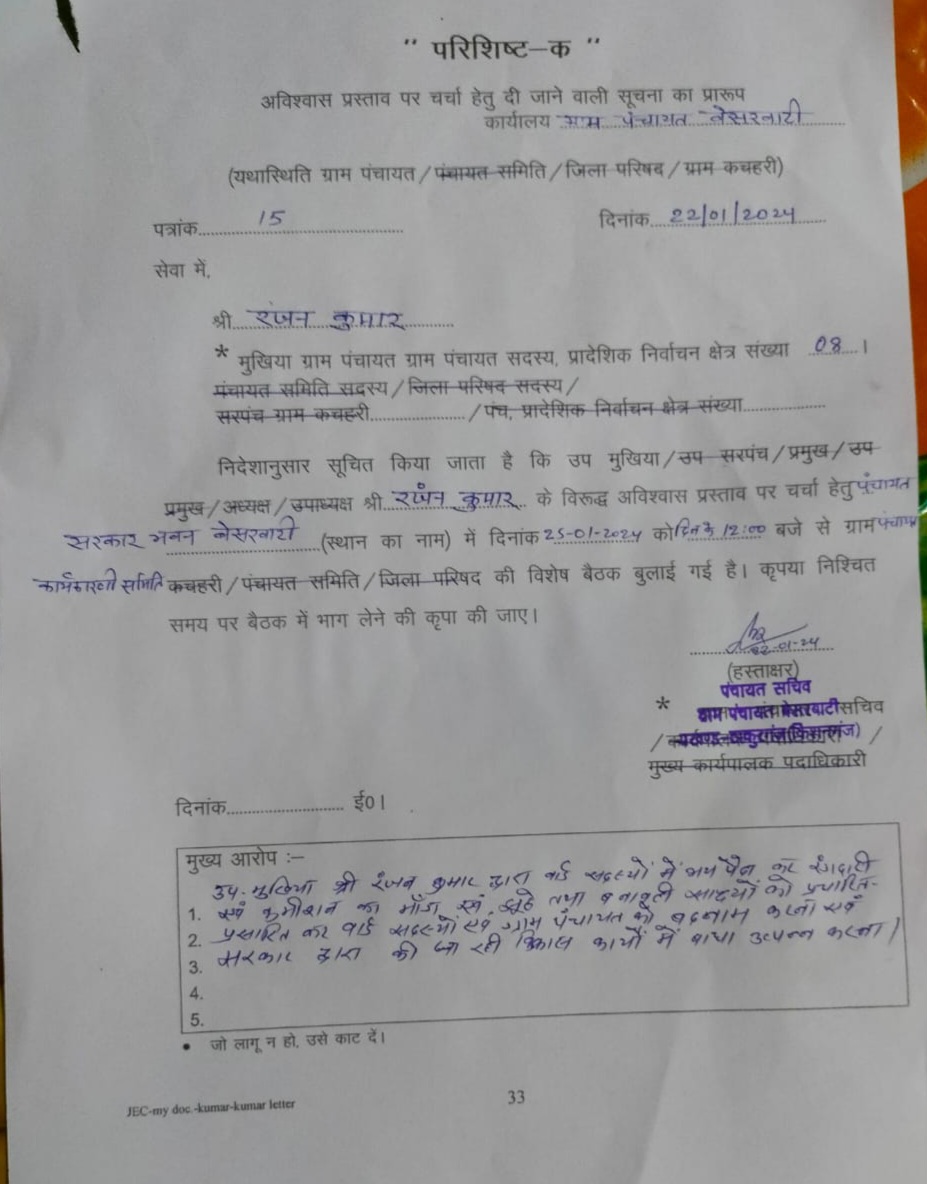 " परिशिष्ट–क "
अविश्वास प्रस्ताव पर चर्चा हेतु दी जाने वाली सूचना का प्रारूप
कार्यालय ग्राम पंचायत बेसरबाटी
(यथास्थिति ग्राम पंचायत/पंचायत समिति/जिला परिषद/ग्राम कचहरी)
पत्रांक 15 दिनांक 22/01/2024
सेवा में,
श्री रंजन कुमार
* मुखिया ग्राम पंचायत ग्राम पंचायत सदस्य, प्रादेशिक निर्वाचन क्षेत्र संख्या 08।
पंचायत समिति सदस्य/जिला परिषद सदस्य/
सरपंच ग्राम कचहरी............/पंच, प्रादेशिक निर्वाचन क्षेत्र संख्या............
निदेशानुसार सूचित किया जाता है कि उप मुखिया/उप सरपंच/प्रमुख/उप
प्रमुख/अध्यक्ष/उपाध्यक्ष श्री रंजन कुमार के विरूद्ध अविश्वास प्रस्ताव पर चर्चा हेतु पंचायत
सरकार भवन बेसरबाटी (स्थान का नाम) में दिनांक 25-01-2024 को दिन के 12:00 बजे से ग्राम पंचायत
कार्यकारणी समिति कचहरी/पंचायत समिति/जिला परिषद की विशेष बैठक बुलाई गई है। कृपया निश्चित
समय पर बैठक में भाग लेने की कृपा की जाए।
22-01-24
(हस्ताक्षर)
पंचायत सचिव
* ग्राम पंचायत बेसरबाटी सचिव
/ /
मुख्य कार्यपालक पदाधिकारी
दिनांक............ ई०।
मुख्य आरोप :–
उप-मुखिया श्री रंजन कुमार द्वारा वार्ड सदस्यों में भय पैदा कर रंगदारी
1. एवं कमीशन का माँग एवं झूठे तथा बनावटी साक्ष्यों को प्रचारित-
2. प्रसारित कर वार्ड सदस्यों एवं ग्राम पंचायत को बदनाम करना एवं
3. सरकार द्वारा की जा रही विकास कार्यों में बाधा उत्पन्न करना।
4.
5.
• जो लागू न हो, उसे काट दें।
JEC-my doc.-kumar-kumar letter 33